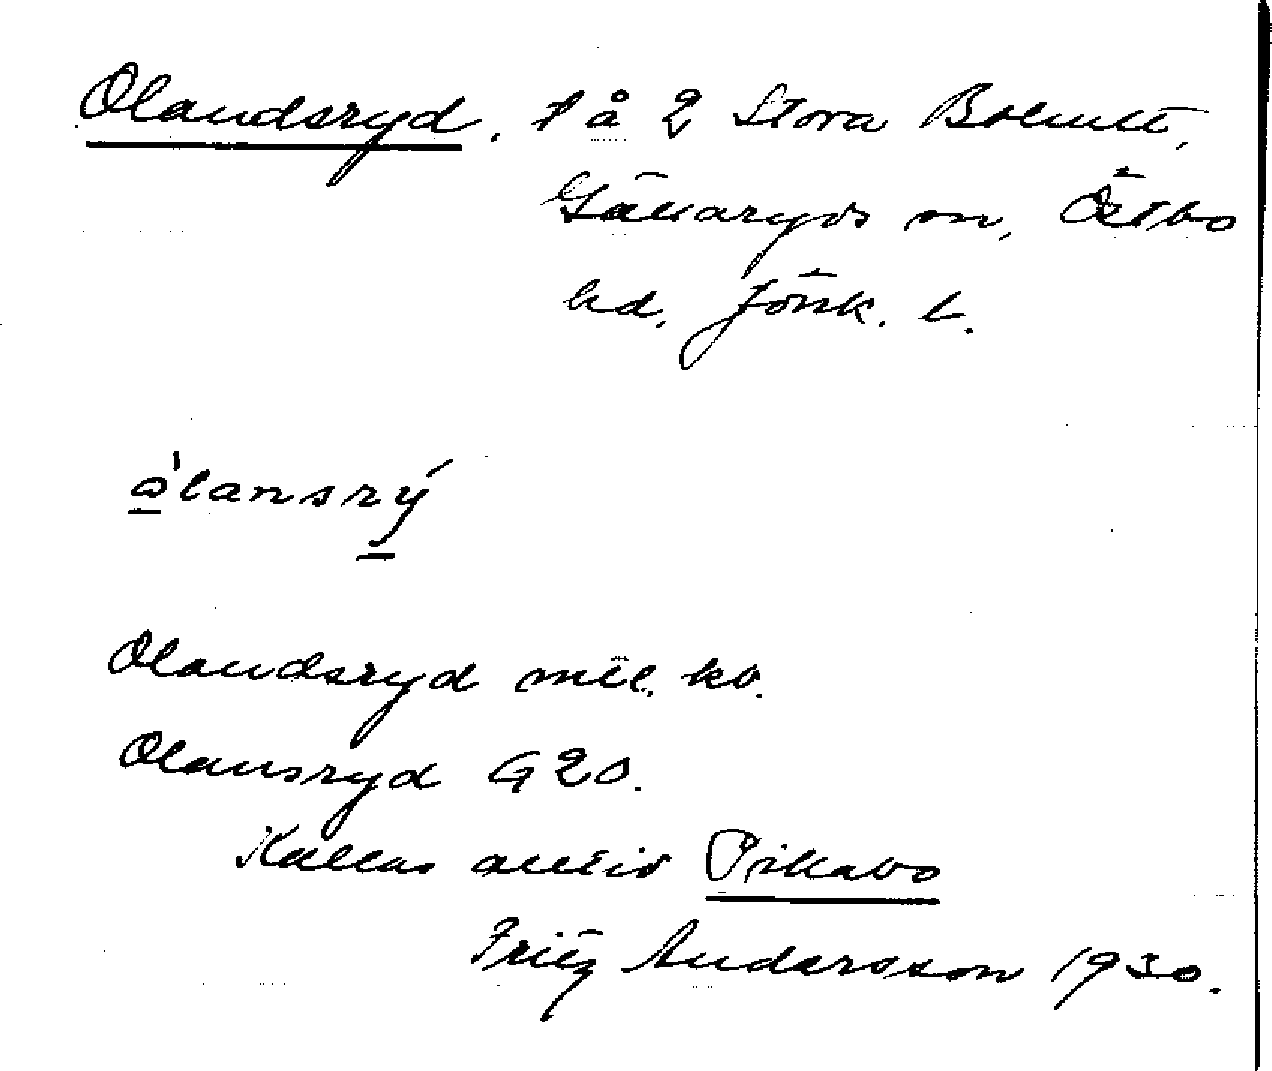 Olandsryd. t å 2 Stora Bolmstt,
Gällaryds sn, Östbo
hd, Jönk. l.
ò̱lansrý
Olandsryd mtl. ko.
Olansryd G20.
Kallas alltid Pikabo
Fritz Andersson 1930.